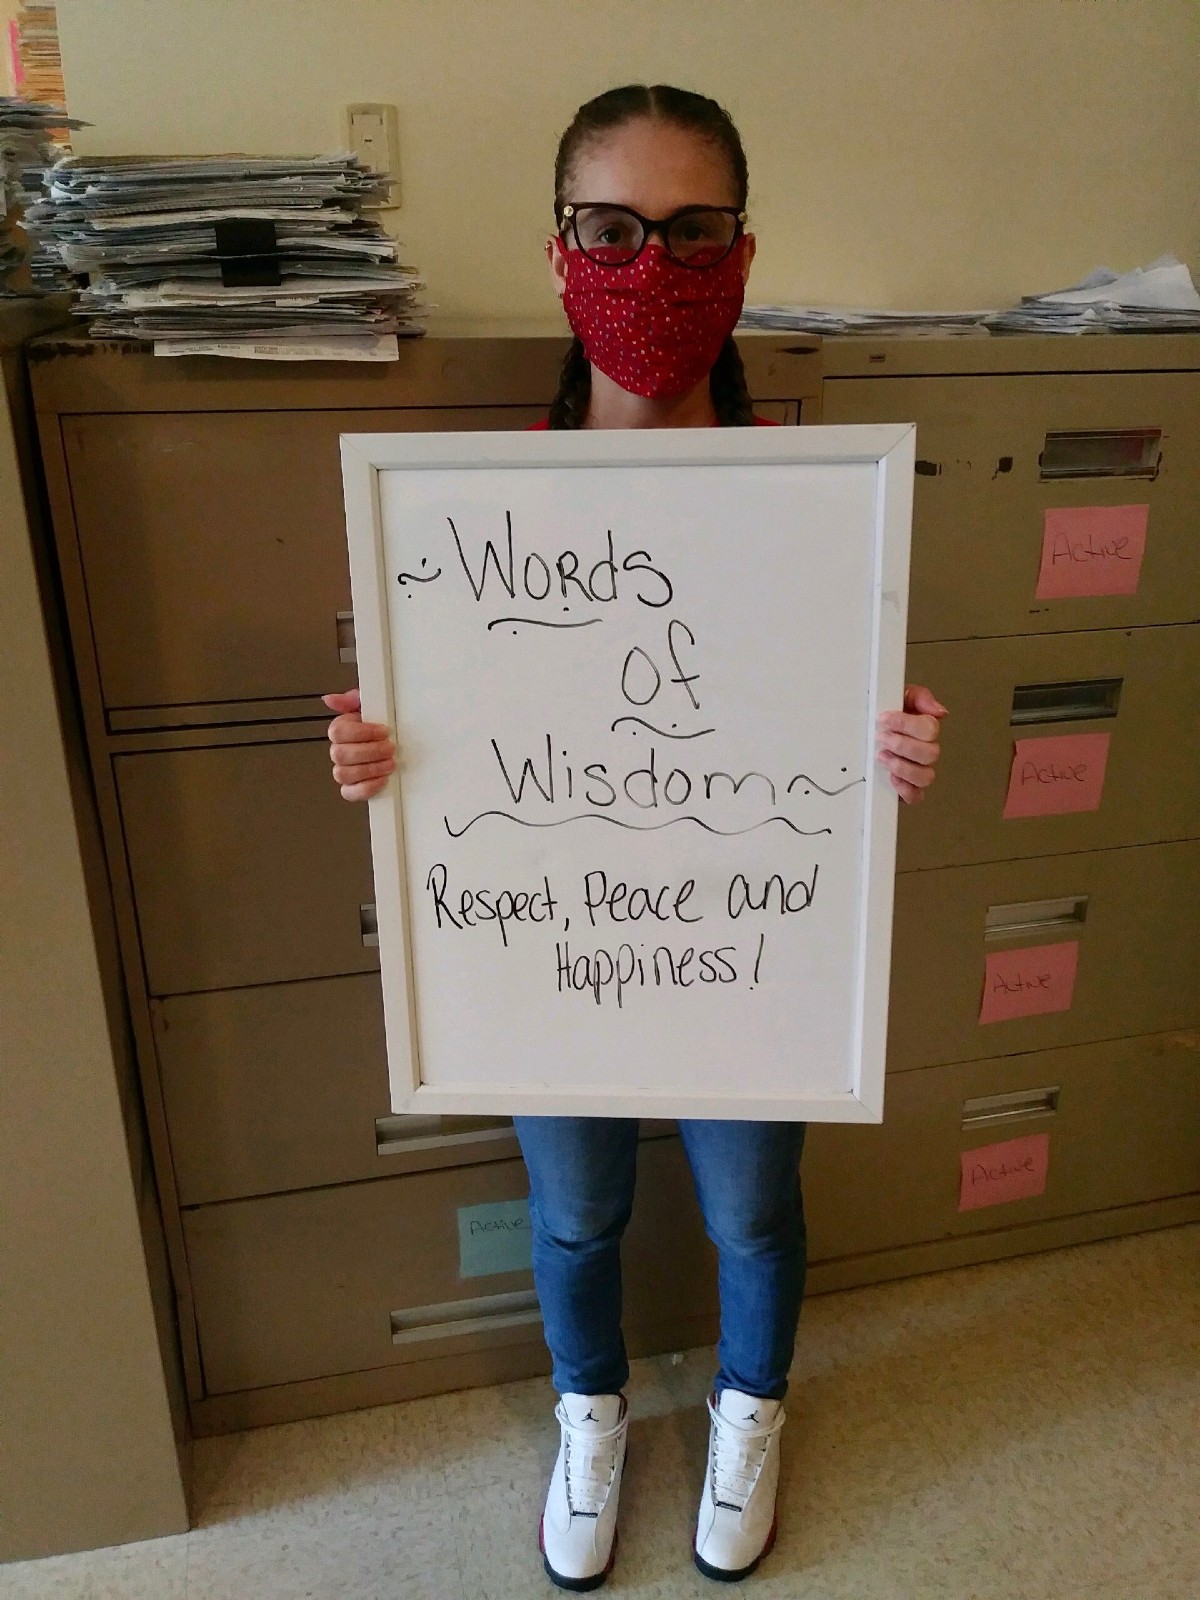 ~ Words
Of
Wisdom ~
Respect, Peace and
Happiness!
Active
Active
Active
Active
Active